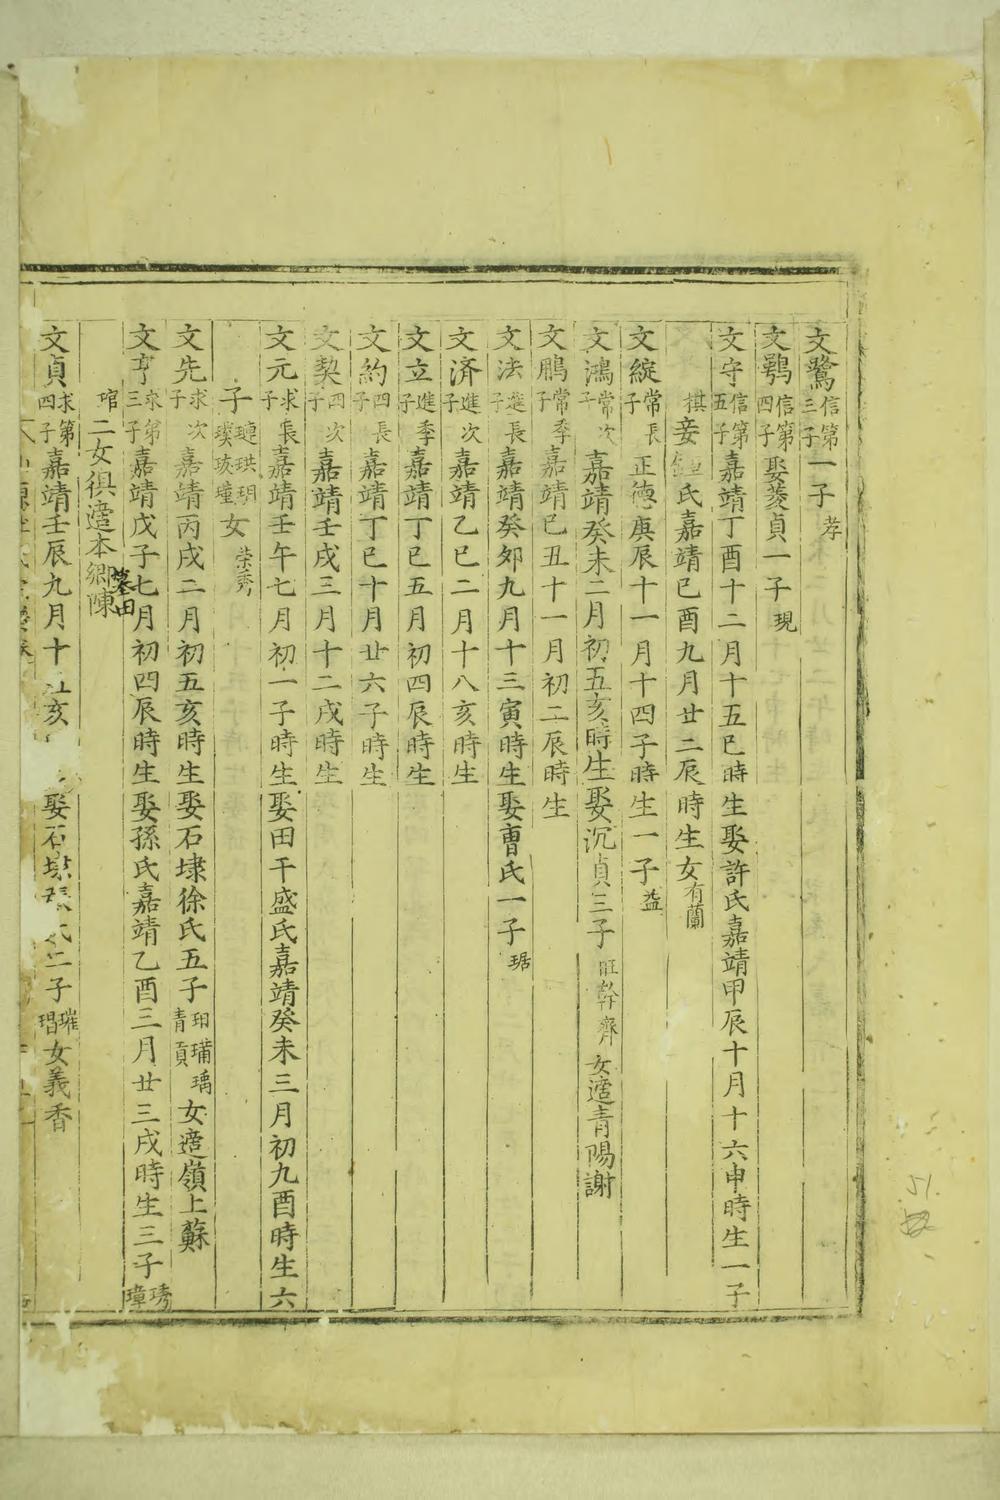 文鷟信第三子一子孝
文鶚信第四子娶菱貞一子現
文守信第五子嘉靖丁酉十二月十五巳時生娶許氏嘉靖甲辰十月十六申時生一子
棋妾氏嘉靖己酉九月廿二辰時生女有蘭
文綻常長子正德庚辰十一月十四子時生一子益
文鴻常次子嘉靖癸未二月初五亥時生娶沉貞三子旺幹齊女適青陽謝
文鵬常季子嘉靖己丑十一月初二辰時生
文法進長子嘉靖癸卯九月十三寅時生娶曹氏一子琚
文済進次子嘉靖乙巳二月十八亥時生
文立進季子嘉靖丁巳五月初四辰時生
文約四長子嘉靖丁巳十月廿六子時生
文契四次子嘉靖壬戌三月十二戌時生
文元求長子嘉靖壬午七月初一子時生娶田干盛氏嘉靖癸未三月初九酉時生六
子璉珙玥璞琰瓊女荣秀
文先求次子嘉靖丙戌二月初五亥時生娶石埭徐氏五子珀瑀女適嶺上蘇
文亨求第三子嘉靖戊子七月初四辰時生娶孫氏嘉靖乙酉三月廿三戌時生三子琇璋
琯二女俱適本鄉陳墓田
文貞求第四子嘉靖壬辰九月十亥娶石二子璀琩女義香
51